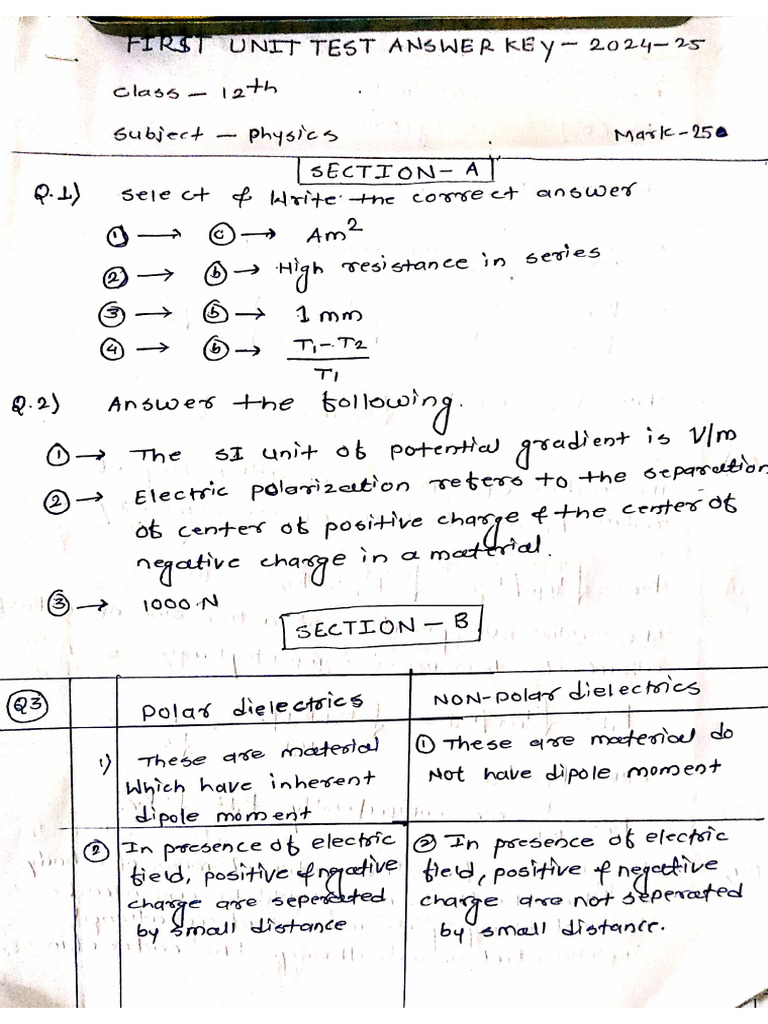 FIRST UNIT TEST ANSWER KEY - 2024-25
Class - 12th
Subject - Physics Mark - 25
SECTION - A
Q.1) Select & Write the correct answer
① → ⓒ → Am²
② → ⓑ → High resistance in series
③ → ⓑ → 1 mm
④ → ⓑ → T1 - T2
T1
Q.2) Answer the following.
① → The SI unit of potential gradient is V/m
② → Electric polarization refers to the separation
of center of positive charge & the center of
negative charge in a material.
③ → 1000 N
SECTION - B
Q3 Polar dielectrics NON-Polar dielectrics
1) These are material
Which have inherent
dipole moment
① These are material do
Not have dipole moment
② In presence of electric
field, positive & negative
charge are seperated
by small distance
② In presence of electric
field, positive & negative
charge are not seperated
by small distance.